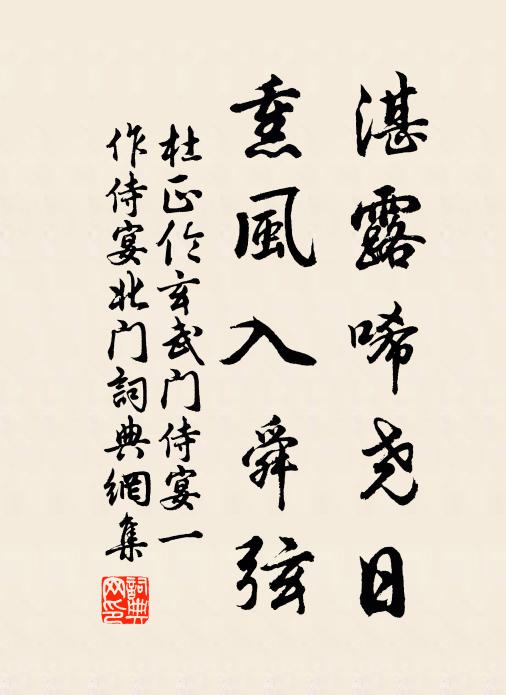 湛露唏尧日
熏風入舜弦
杜正伦玄武门侍宴一
作侍宴北门詞典網集
詞典
网印